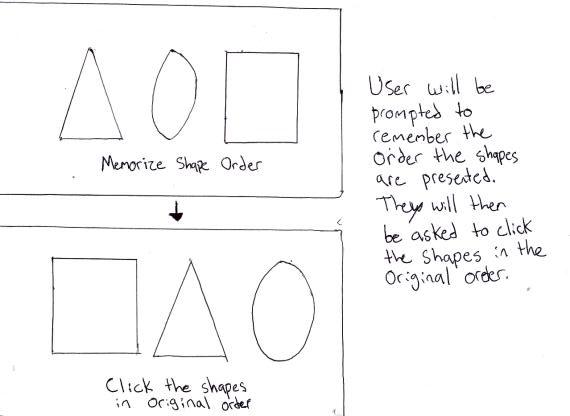 Memorize Shape Order
Click the shapes
in original order
User will be
prompted to
remember the
order the shapes
are presented.
They will then
be asked to click
the shapes in the
original order.